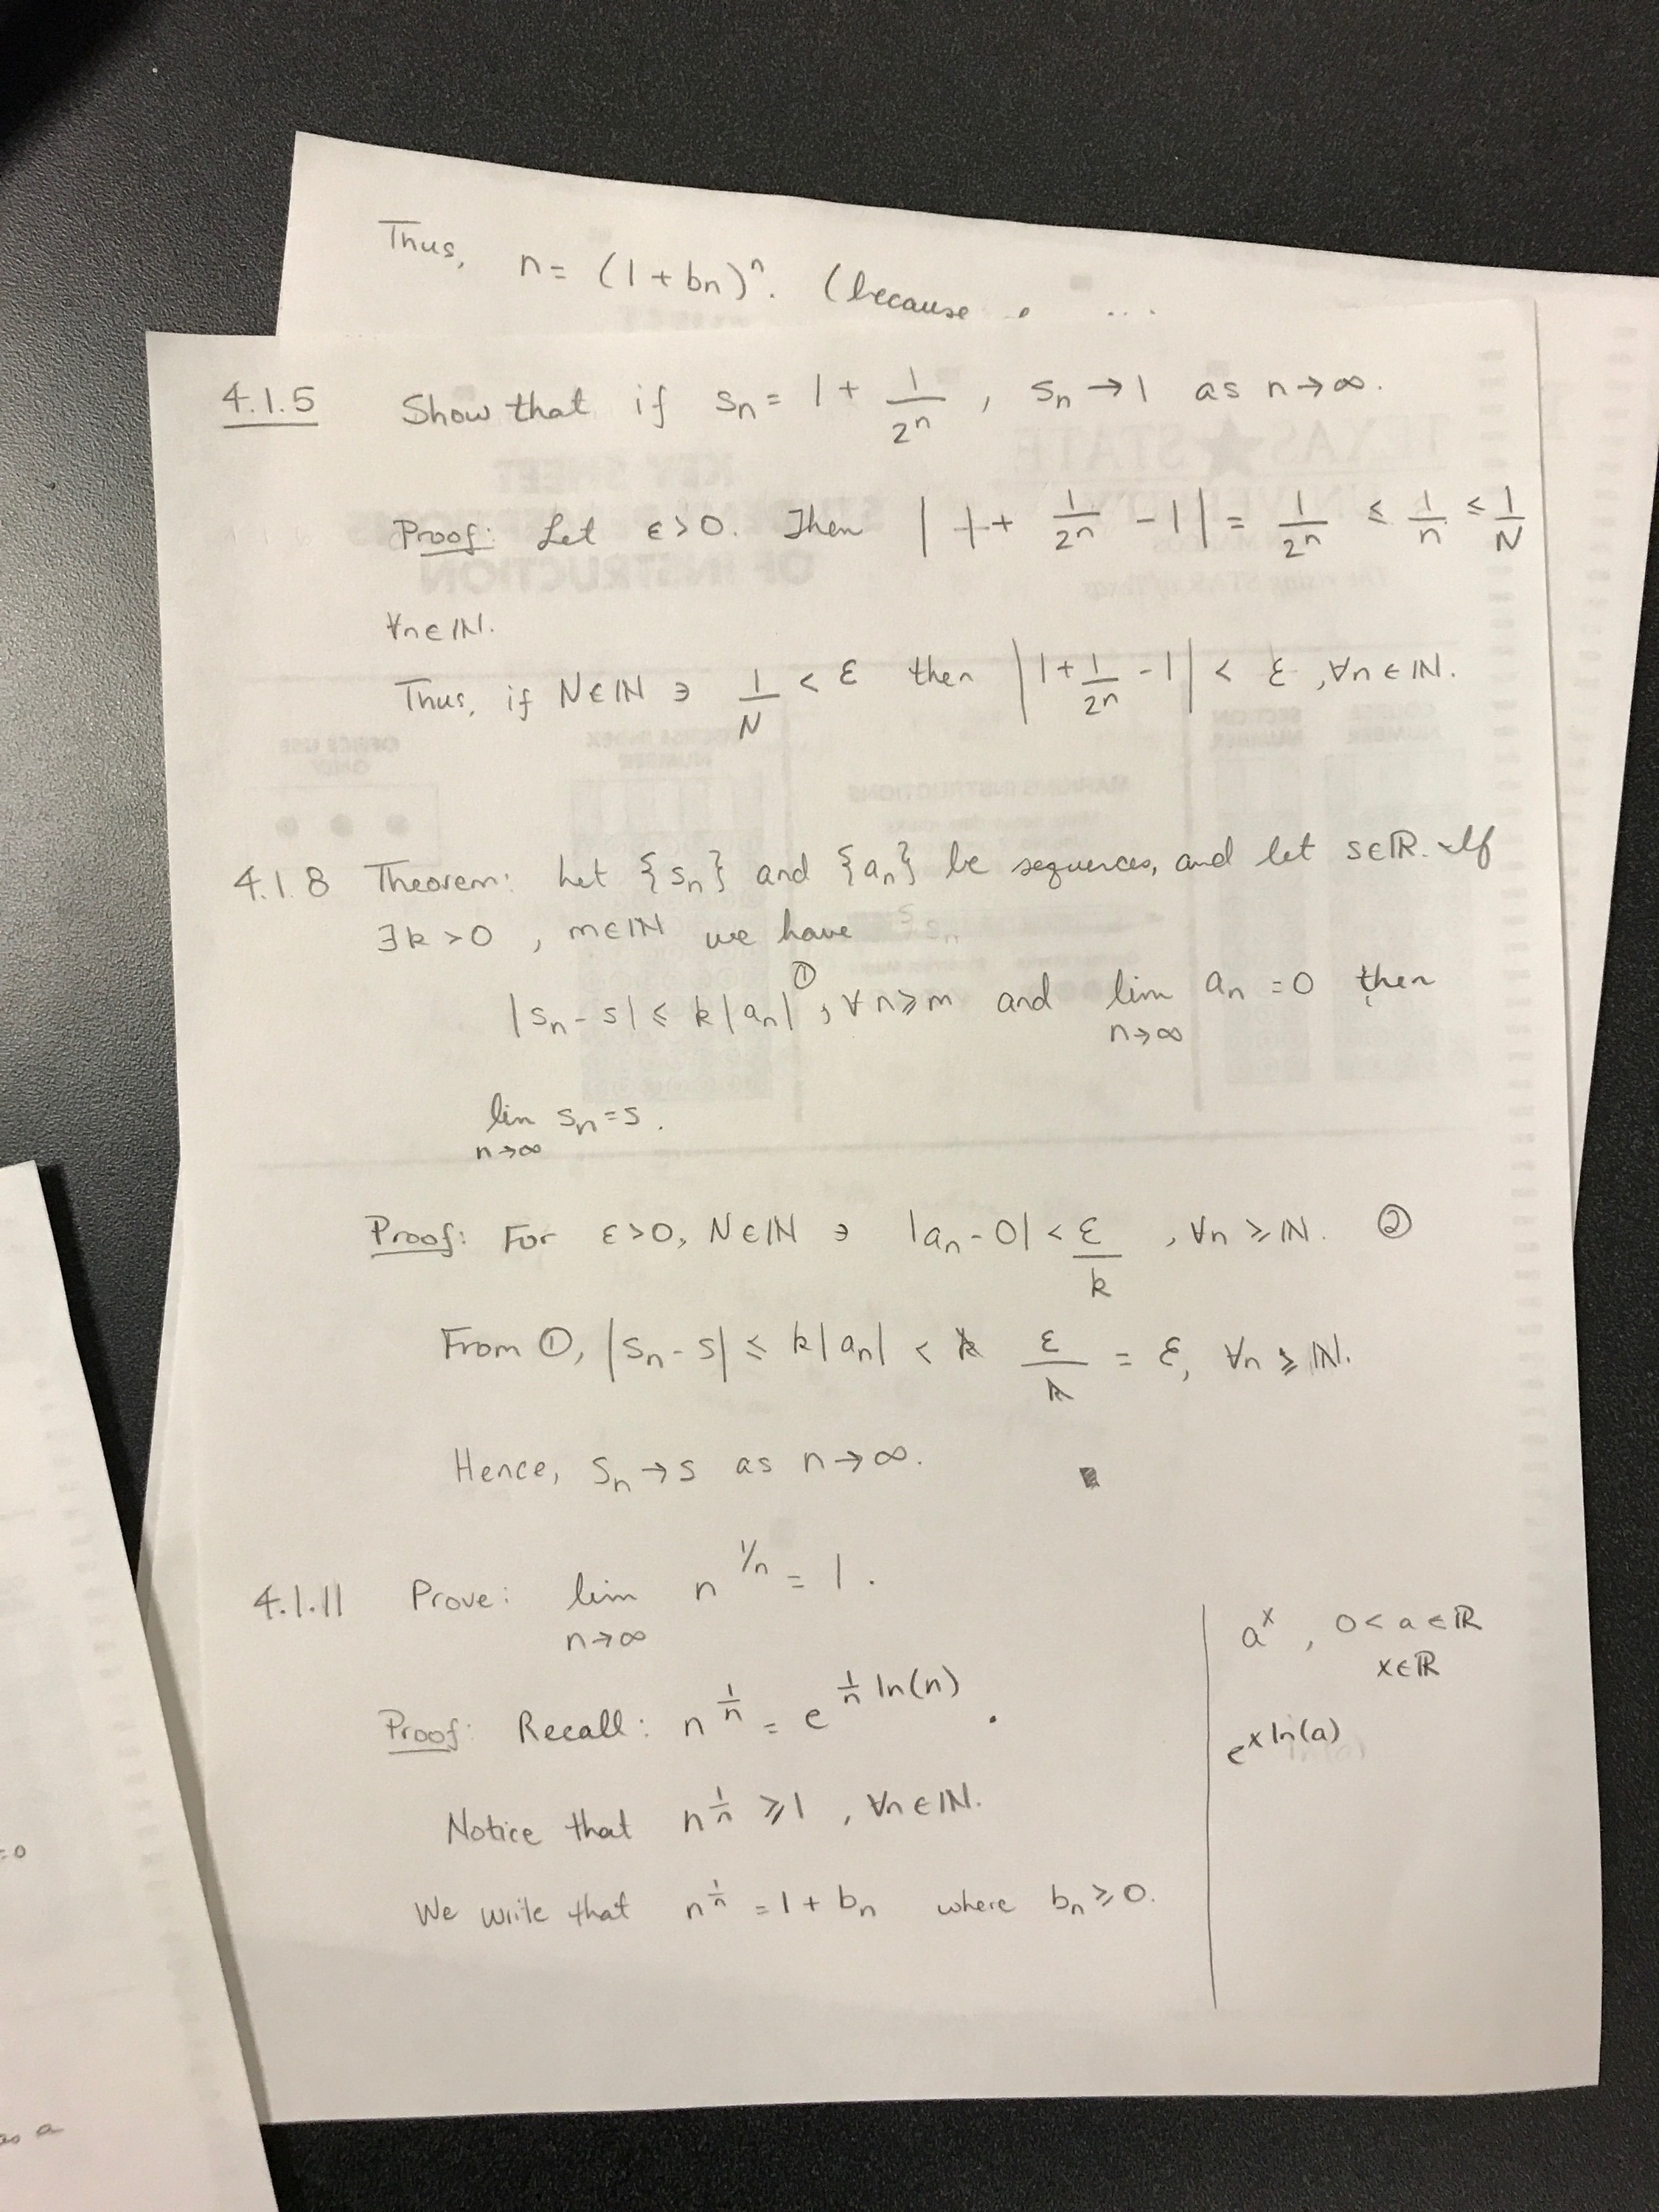 Thus, n = (1 + bn)ⁿ. (because
4.1.5 Show that if sₙ = 1 + 1/2ⁿ , sₙ → 1 as n → ∞.
Proof: Let ε > 0. Then |1 + 1/2ⁿ - 1| = 1/2ⁿ ≤ 1/n ≤ 1/N
∀n ∈ ℕ.
Thus, if N ∈ ℕ ∋ 1/N < ε then |1 + 1/2ⁿ - 1| < ε, ∀n ∈ ℕ.
4.1.8 Theorem: Let {sₙ} and {aₙ} be sequences, and let s ∈ ℝ. If
∃k > 0 , m ∈ ℕ we have
|sₙ - s| ≤ k|aₙ| ①, ∀ n ≥ m and lim n→∞ aₙ = 0 then
lim n→∞ sₙ = s.
Proof: For ε > 0, N ∈ ℕ ∋ |aₙ - 0| < ε/k , ∀n ≥ ℕ. ②
From ①, |sₙ - s| ≤ k|aₙ| < k ε/k = ε, ∀n ≥ ℕ.
Hence, sₙ → s as n → ∞. ∎
4.1.11 Prove: lim n→∞ n^(1/n) = 1.
Proof: Recall: n^(1/n) = e^(1/n ln(n)).
Notice that n^(1/n) ≥ 1 , ∀n ∈ ℕ.
We write that n^(1/n) = 1 + bₙ where bₙ ≥ 0.
aˣ , 0 < a ∈ ℝ
x ∈ ℝ
e^(x ln(a))
= 0
as a